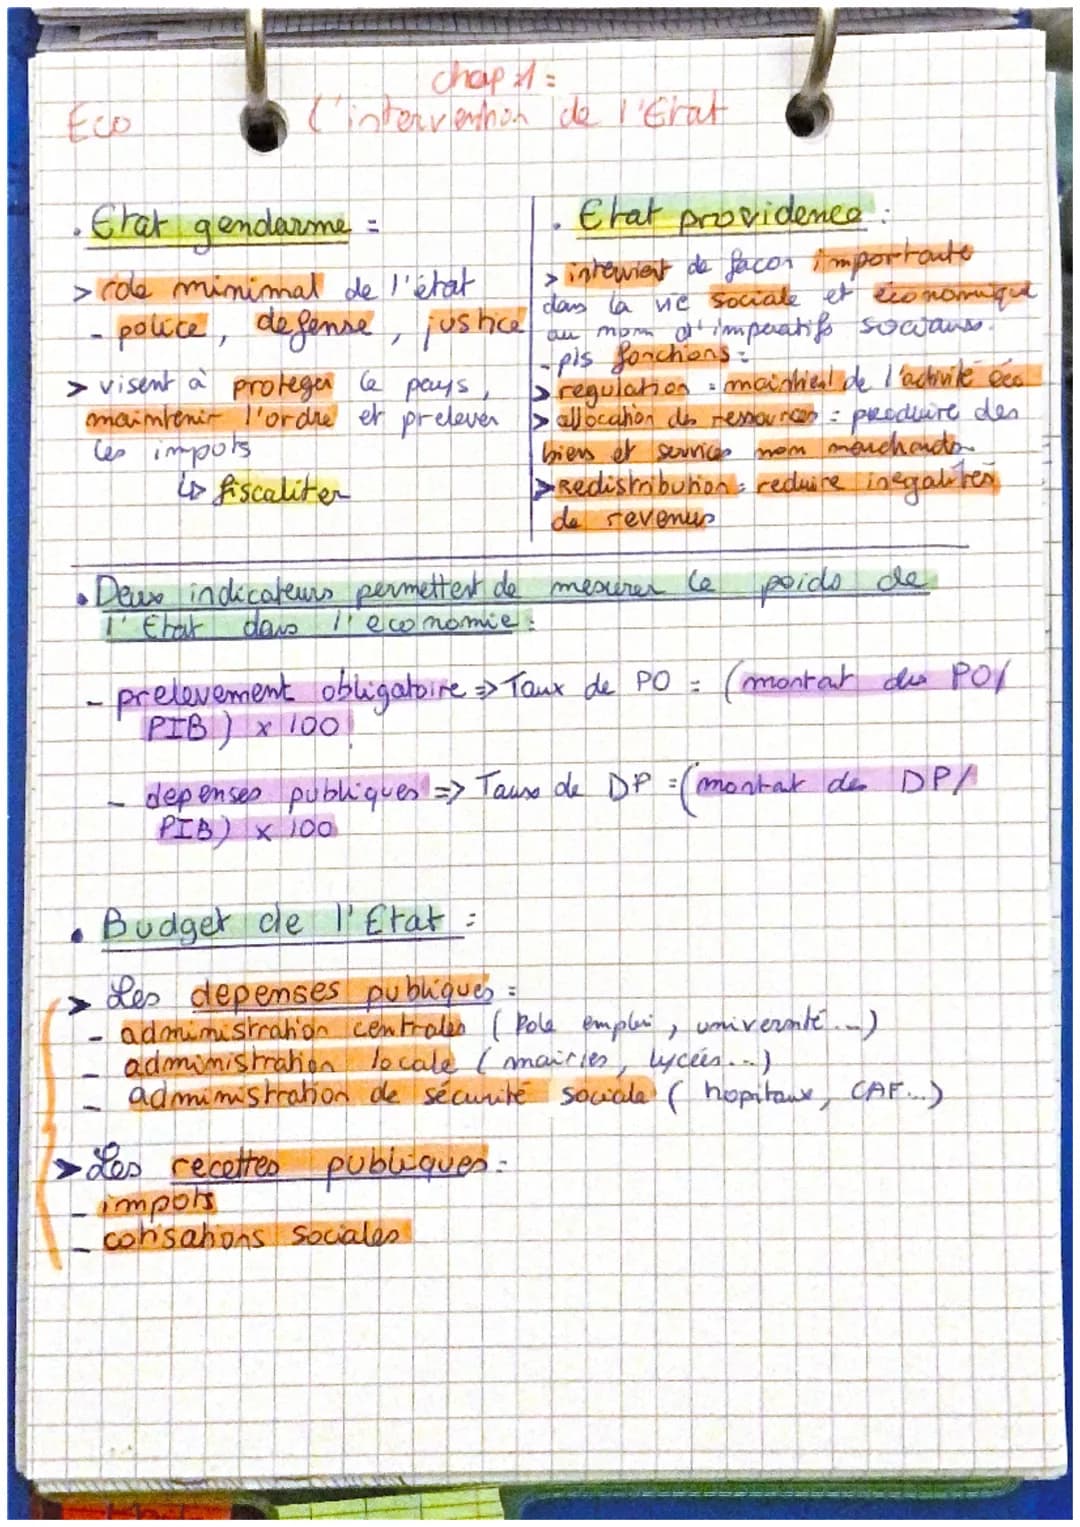 chap 1 :
Eco L'intervention de l'Etat
. Etat gendarme =
> role minimal de l'état
- police, defense, justice
> visent à proteger le pays,
maintenir l'ordre et prelever
les impots
↳ fiscaliter
. Etat providence :
> intervient de façon importante
dans la vie sociale et économique
au nom d'imperatifs sociaux.
- pls fonctions :
> regulation = maintient de l'activité éco
> allocation des ressources = produire des
biens et services non marchands
> Redistribution = reduire inegalités
de revenus
• Deux indicateurs permettent de mesurer le poids de
l'Etat dans l'economie :
- prelevement obligatoire => Taux de PO = (montat des PO/
PIB) x 100
- depenses publiques => Taux de DP = (montat des DP/
PIB) x 100
• Budget de l'Etat :
> Les depenses publiques :
- administration centrales (Pole emploi, université...)
- administration locale (mairies, lycées...)
- administration de sécurité sociale (hopitaux, CAF...)
> Les recettes publiques :
- impots
- cotisations sociales